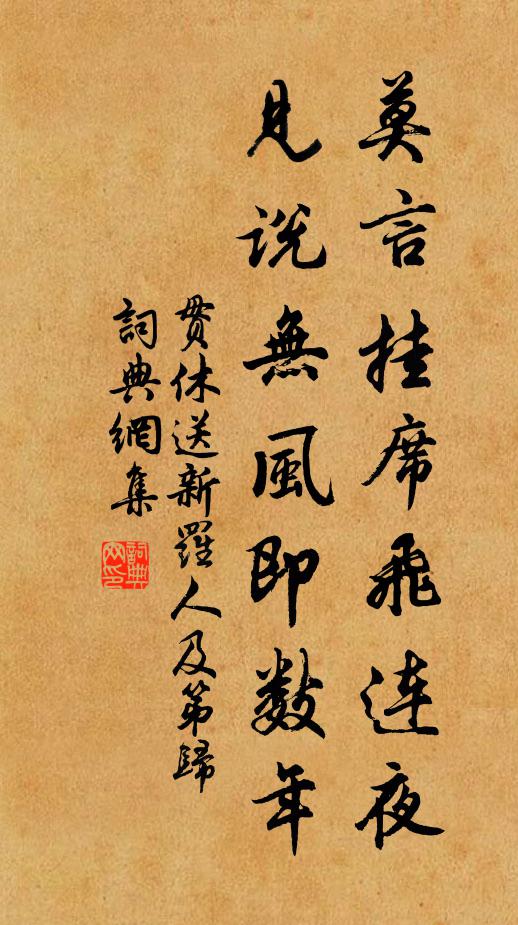 莫言挂席飛連夜
見説無風即數年
貫休送新羅人及第歸
詞典網集
詞典
网印